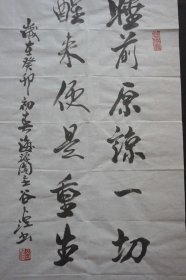 睡前原谅一切
醒来便是重生
岁在癸卯初春海瑞阁主谷